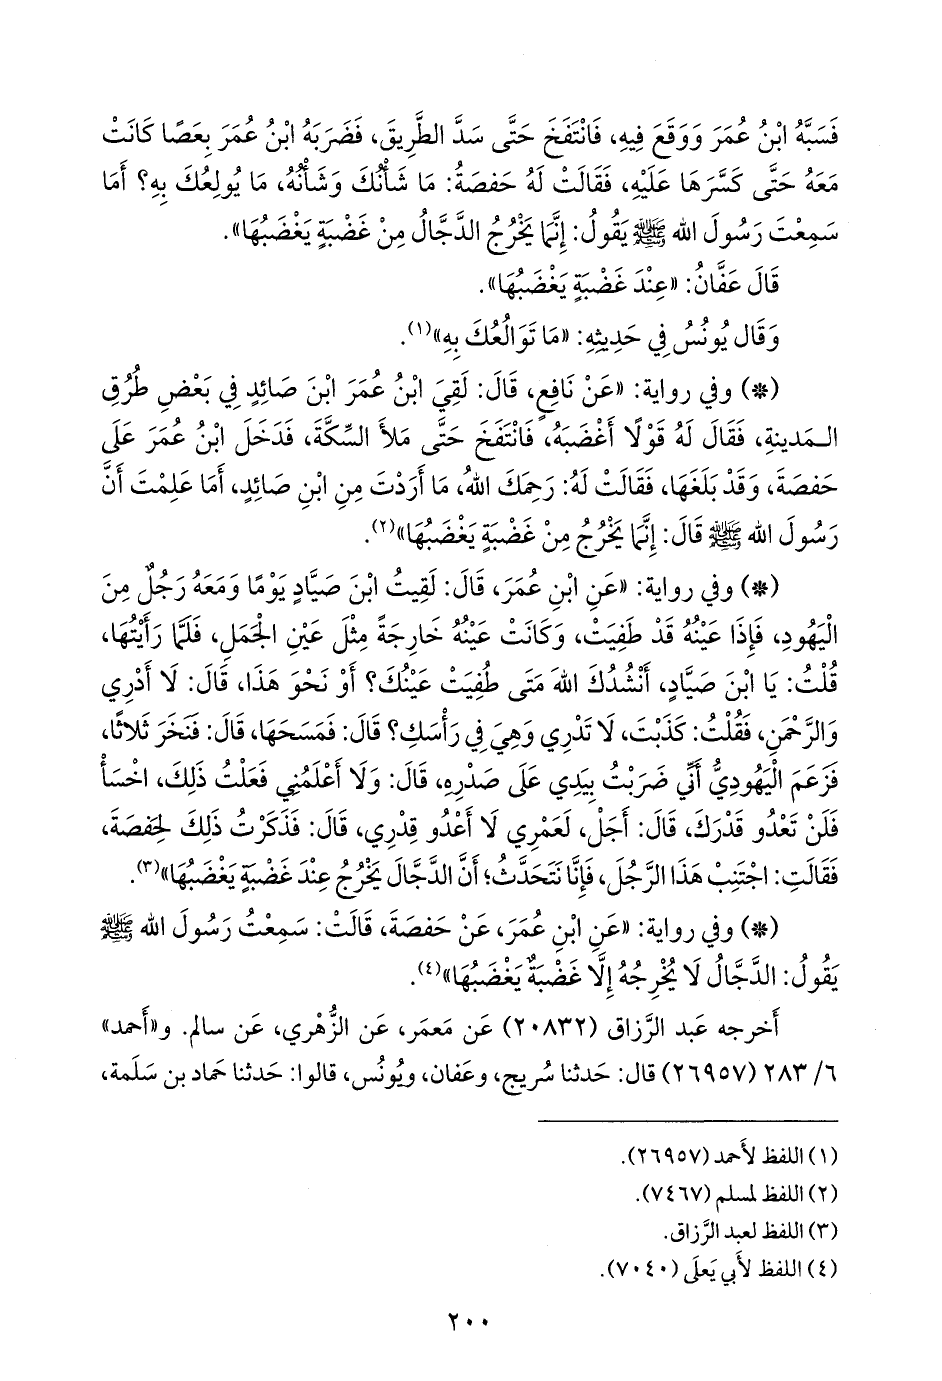 فَسَبَّهُ ابْنُ عُمَرَ وَوَقَعَ فِيهِ، فَانْتَفَخَ حَتَّى سَدَّ الطَّرِيقَ، فَضَرَبَهُ ابْنُ عُمَرَ بِعَصًا كَانَتْ
مَعَهُ حَتَّى كَسَّرَهَا عَلَيْهِ، فَقَالَتْ لَهُ حَفصَةُ: مَا شَأْنُكَ وَشَأْنُهُ، مَا يُولِعُكَ بِهِ؟ أَمَا
سَمِعْتَ رَسُولَ الله ﷺ يَقُولُ: إِنَّمَا يَخْرُجُ الدَّجَّالُ مِنْ غَضْبَةٍ يَغْضَبُهَا».
قَالَ عَفَّانُ: «عِنْدَ غَضْبَةٍ يَغْضَبُهَا».
وَقَال يُونُسُ فِي حَدِيثِهِ: «مَا تَوَالُعُكَ بِهِ»(١).
(*) وفي رواية: «عَنْ نَافِعٍ، قَالَ: لَقِيَ ابْنُ عُمَرَ ابْنَ صَائِدٍ فِي بَعْضِ طُرُقِ
الـمَدينةِ، فَقَالَ لَهُ قَوْلًا أَغْضَبَهُ، فَانْتَفَخَ حَتَّى مَلأَ السِّكَّةَ، فَدَخَلَ ابْنُ عُمَرَ عَلَى
حَفصَةَ، وَقَدْ بَلَغَهَا، فَقَالَتْ لَهُ: رَحِمَكَ اللهُ، مَا أَرَدْتَ مِنِ ابْنِ صَائِدٍ، أَمَا عَلِمْتَ أَنَّ
رَسُولَ الله ﷺ قَالَ: إِنَّمَا يَخْرُجُ مِنْ غَضْبَةٍ يَغْضَبُهَا»(٢).
(*) وفي رواية: «عَنِ ابْنِ عُمَرَ، قَالَ: لَقِيتُ ابْنَ صَيَّادٍ يَوْمًا وَمَعَهُ رَجُلٌ مِنَ
الْيَهُودِ، فَإِذَا عَيْنُهُ قَدْ طَفِيَتْ، وَكَانَتْ عَيْنُهُ خَارِجَةً مِثْلَ عَيْنِ الْجَمَلِ، فَلَمَّا رَأَيْتُهَا،
قُلْتُ: يَا ابْنَ صَيَّادٍ، أَنْشُدُكَ اللهَ مَتَى طُفِيَتْ عَيْنُكَ؟ أَوْ نَحْوَ هَذَا، قَالَ: لَا أَدْرِي
وَالرَّحْمَنِ، فَقُلْتُ: كَذَبْتَ، لَا تَدْرِي وَهِيَ فِي رَأْسِكِ؟ قَالَ: فَمَسَحَهَا، قَالَ: فَنَخَرَ ثَلَاثًا،
فَزَعَمَ الْيَهُودِيُّ أَنِّي ضَرَبْتُ بِيَدِي عَلَى صَدْرِهِ، قَالَ: وَلَا أَعْلَمُنِي فَعَلْتُ ذَلِكَ، اخْسَأْ
فَلَنْ تَعْدُوَ قَدْرَكَ، قَالَ: أَجَلْ، لَعَمْرِي لَا أَعْدُو قِدْرِي، قَالَ: فَذَكَرْتُ ذَلِكَ لِحَفصَةَ،
فَقَالَتِ: اجْتَنِبْ هَذَا الرَّجُلَ، فَإِنَّا نَتَحَدَّثُ؛ أَنَّ الدَّجَّالَ يَخْرُجُ عِنْدَ غَضْبَةٍ يَغْضَبُهَا»(٣).
(*) وفي رواية: «عَنِ ابْنِ عُمَرَ، عَنْ حَفصَةَ، قَالَتْ: سَمِعْتُ رَسُولَ الله ﷺ
يَقُولُ: الدَّجَّالُ لَا يُخْرِجُهُ إِلَّا غَضْبَةٌ يَغْضَبُهَا»(٤).
أَخرجه عَبد الرَّزاق (٢٠٨٣٢) عَن مَعمَر، عَن الزُّهْري، عَن سالم. و«أَحمد»
٦/ ٢٨٣ (٢٦٩٥٧) قال: حَدثنا سُريج، وعَفان، ويُونُس، قالوا: حَدثنا حَماد بن سَلَمة،
(١) اللفظ لأَحمد (٢٦٩٥٧).
(٢) اللفظ لمسلم (٧٤٦٧).
(٣) اللفظ لعبد الرَّزاق.
(٤) اللفظ لأَبي يَعلَى (٧٠٤٠).
٢٠٠